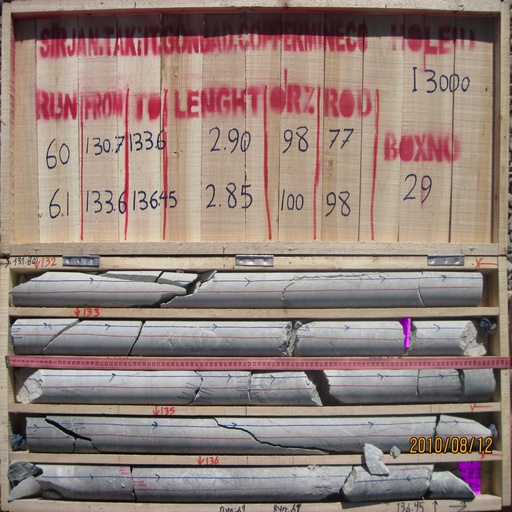 SIRJAN.TAKHT.GONBAD.COPPERMINECO HOLE
I 3000
RUN FROM TO LENGHT CR% RQD
60 130.7 133.6 2.90 98 77
BOXNO
29
61 133.6 136.45 2.85 100 98
131.80 132
133
135
2010/08/12
136
136.45